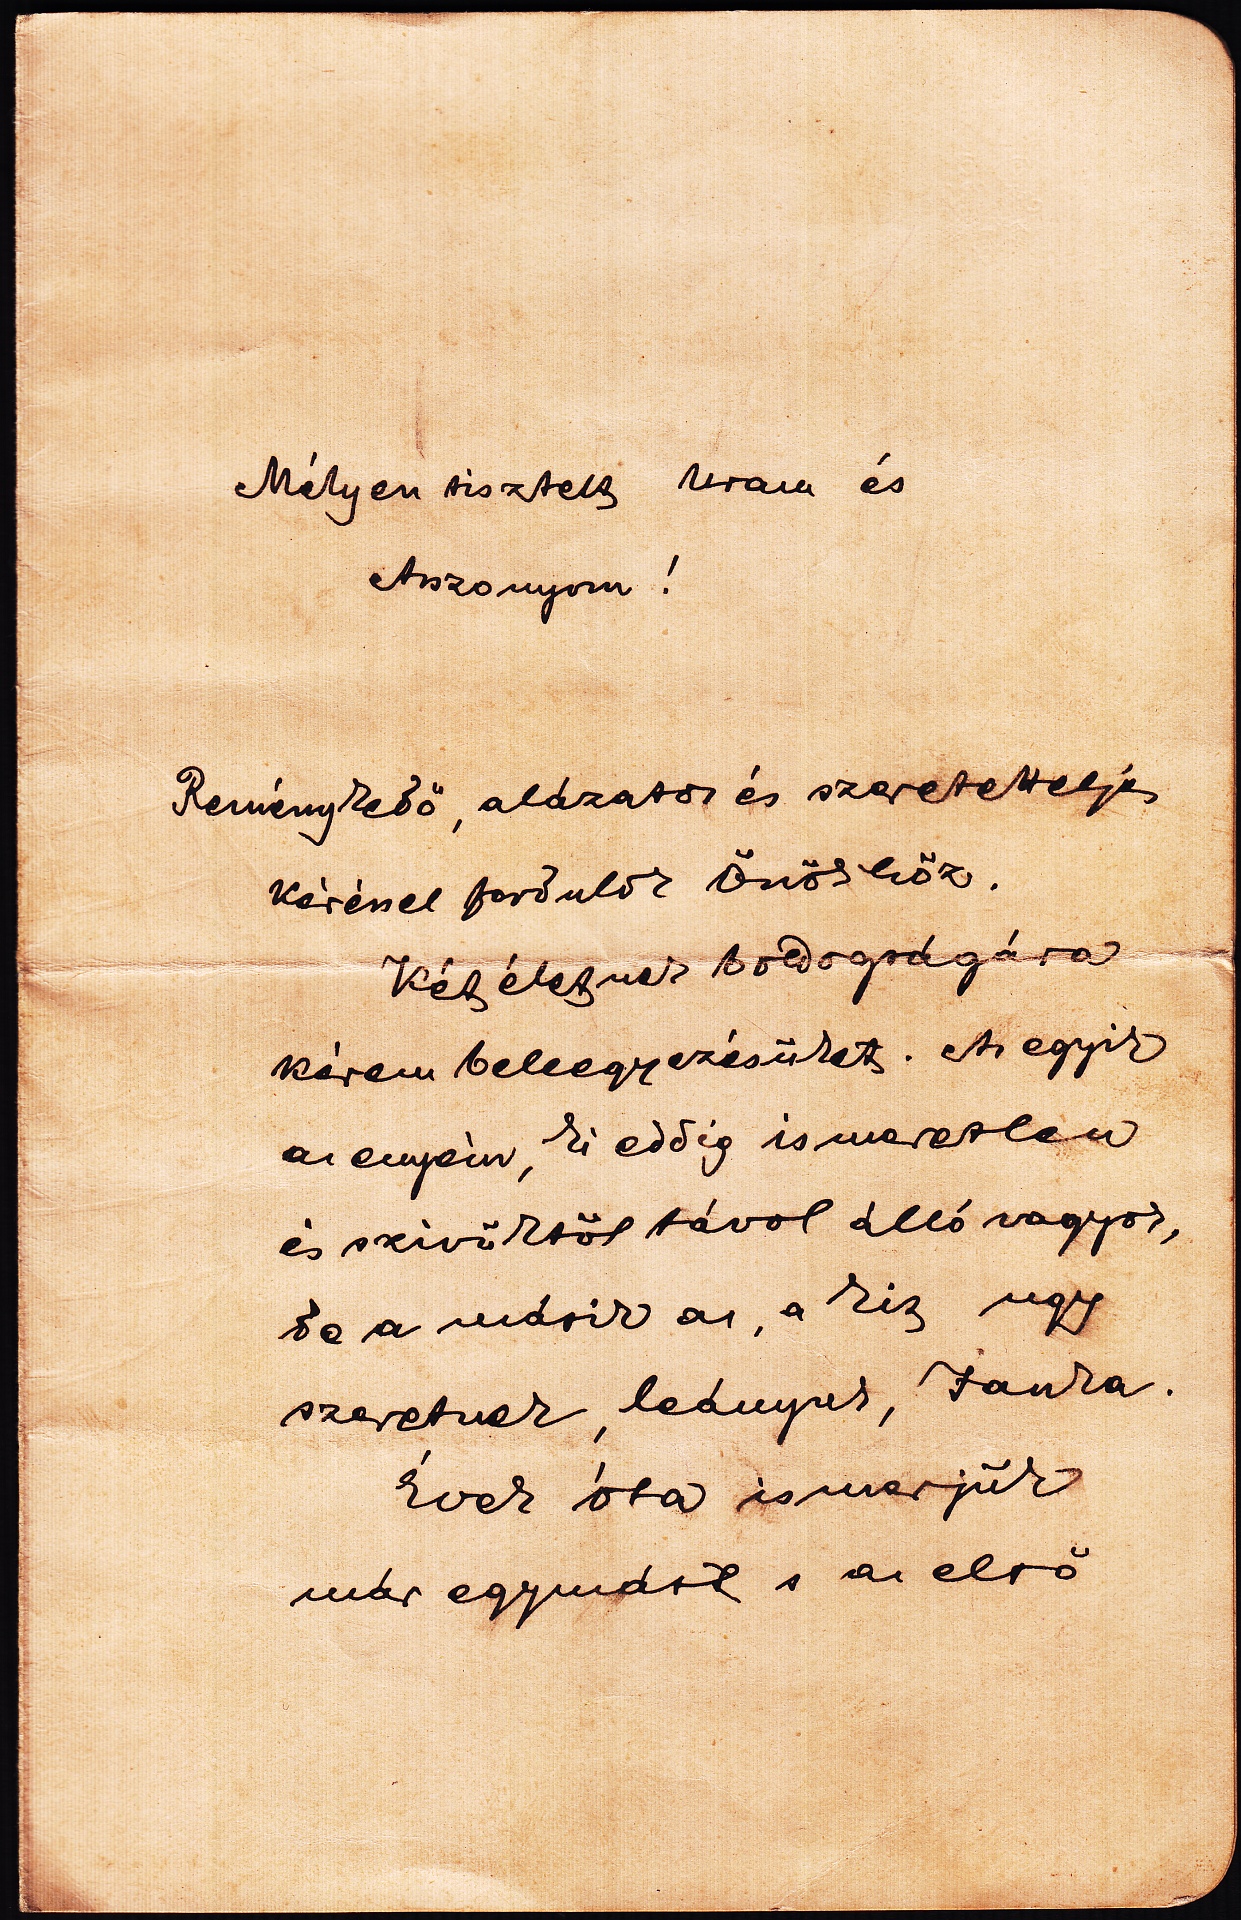 Mélyen tisztelt Uram és
Asszonyom!
Reménykedő, alázatos és szeretetteljes
kéréssel fordulok Önökhöz.
Két életnek boldogságára
kérem beleegyezésüket. Az egyik
az enyém, ki eddig ismeretlen
és szivüktől távol álló vagyok,
de a másik az, a kit ugy
szeretnek, leányuk, Janka.
Évek óta ismerjük
már egymást s az első